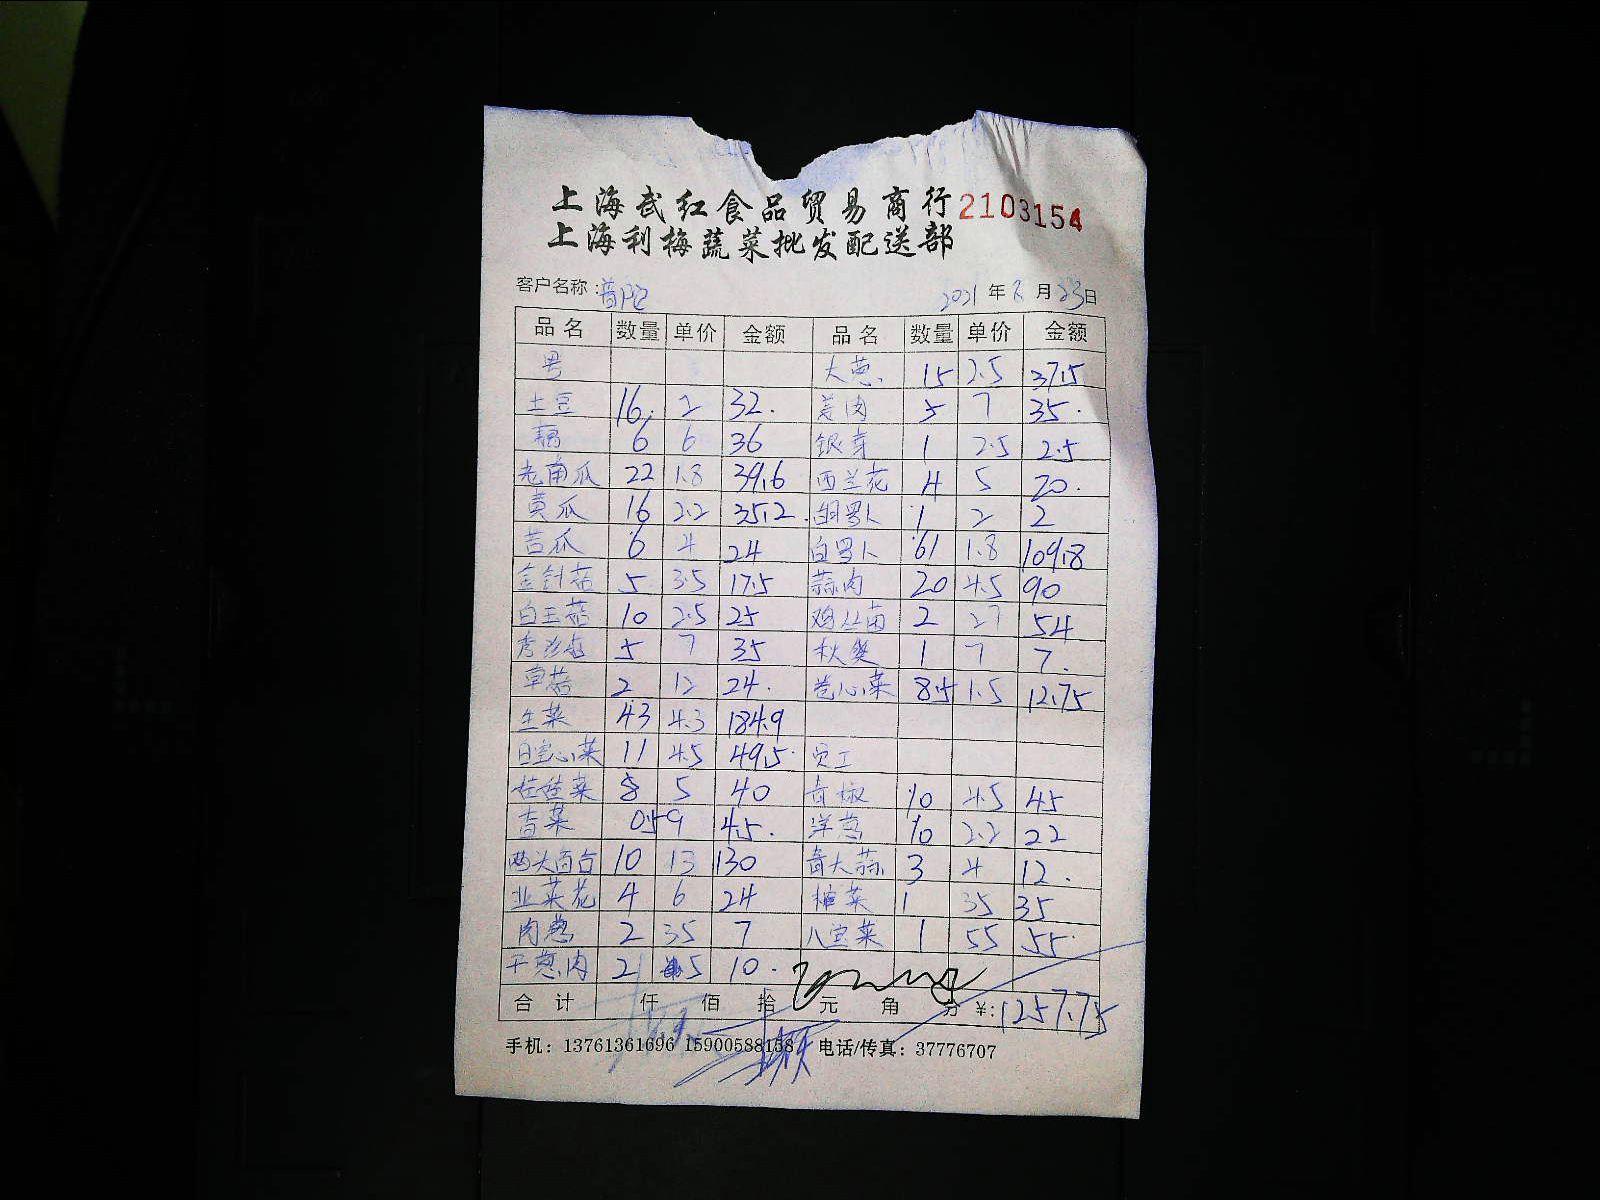 上海武红食品贸易商行 2103154
上海利梅蔬菜批发配送部
客户名称: 普陀 2021年 月23日
品名 数量 单价 金额 品名 数量 单价 金额
大葱 15 2.5 37.5
土豆 16 2 32. 姜肉 5 7 35.
藕 6 6 36 银芽 1 2.5 2.5
老南瓜 22 1.8 39.6 西兰花 4 5 20.
黄瓜 16 2.2 35.2 胡罗卜 1 2 2
苦瓜 6 4 24 白罗卜 61 1.8 109.8
金针菇 5 3.5 17.5 蒜肉 20 4.5 90
白玉菇 10 2.5 25 鸡丛菌 2 27 54
秀珍菇 5 7 35 秋葵 1 7 7.
草菇 2 12 24. 卷心菜 8.5 1.5 12.75
生菜 43 4.3 184.9
空心菜 11 4.5 49.5 员工
菜 8 5 40 青椒 10 4.5 45
香菜 0.5 9 4.5. 洋葱 10 2.2 22
两头百合 10 13 130 青大蒜 3 4 12.
韭菜花 4 6 24 榨菜 1 35 35
肉葱 2 3.5 7 八宝菜 1 55 55
干葱肉 2 5 10.
合计 仟 佰 拾 元 角 分 ¥:1257.75
手机: 13761361696 15900588158 电话/传真: 37776707